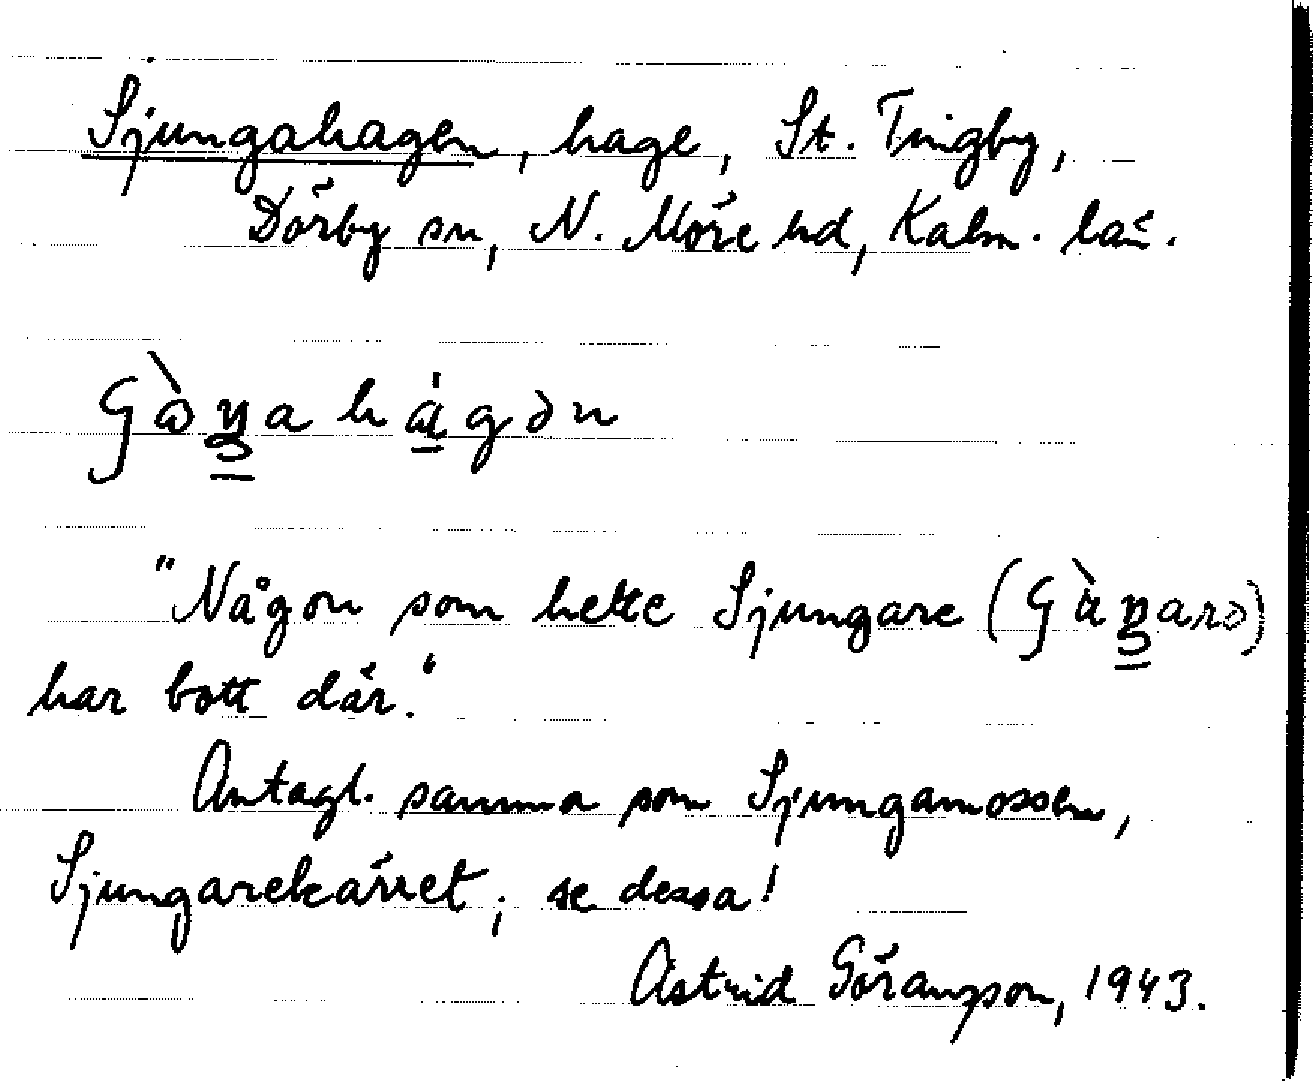 Sjungahagen, hage, St. Tingby,
Dörby sn, N. Möre hd, Kalm. län.
"Någon som hette Sjungare
har bott där."
Antagl. samma som Sjungamossen,
Sjungarekärret; se dessa!
Astrid Göranzson, 1943.